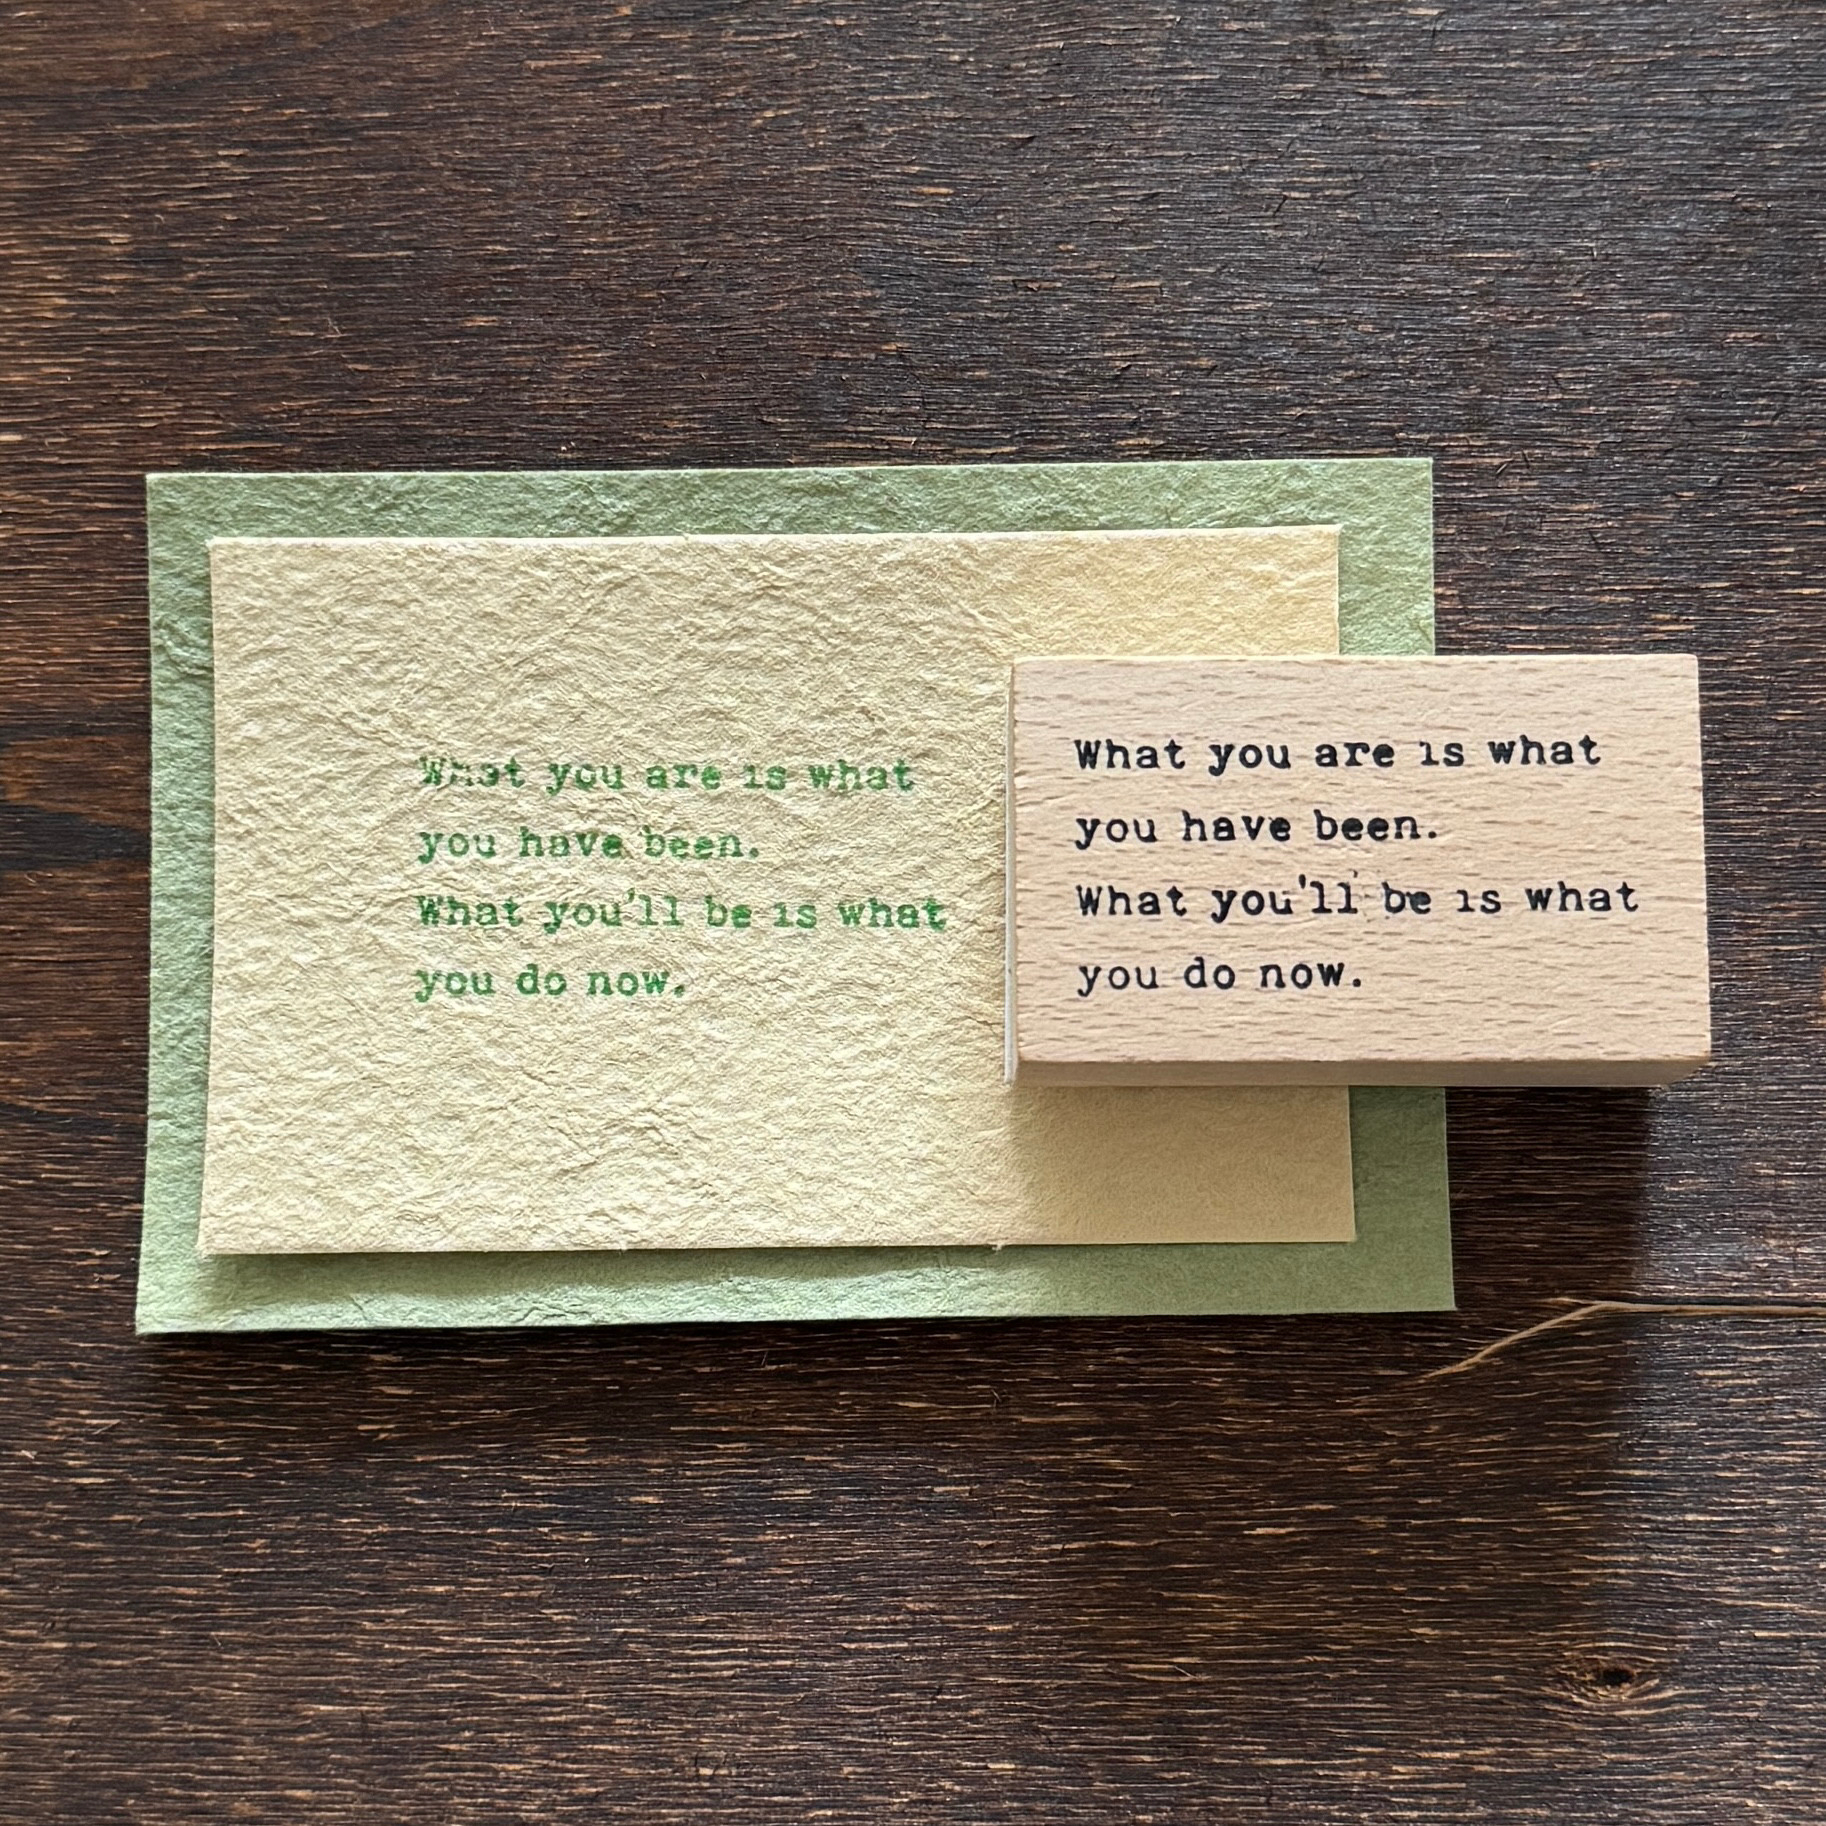 What you are is what
you have been.
What you'll be is what
you do now.
What you are is what
you have been.
What you'll be is what
you do now.